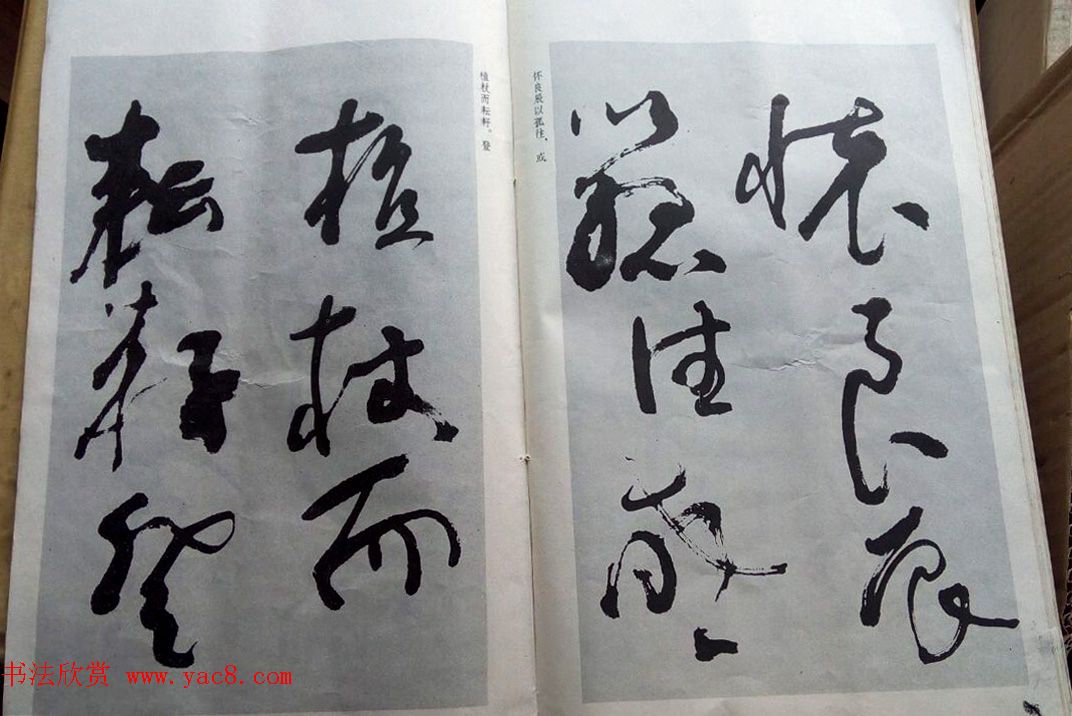 懷良辰
以孤往或
怀良辰以孤往，或
植杖而耘耔。登
植杖而
耘耔登
书法欣赏 www.yac8.com